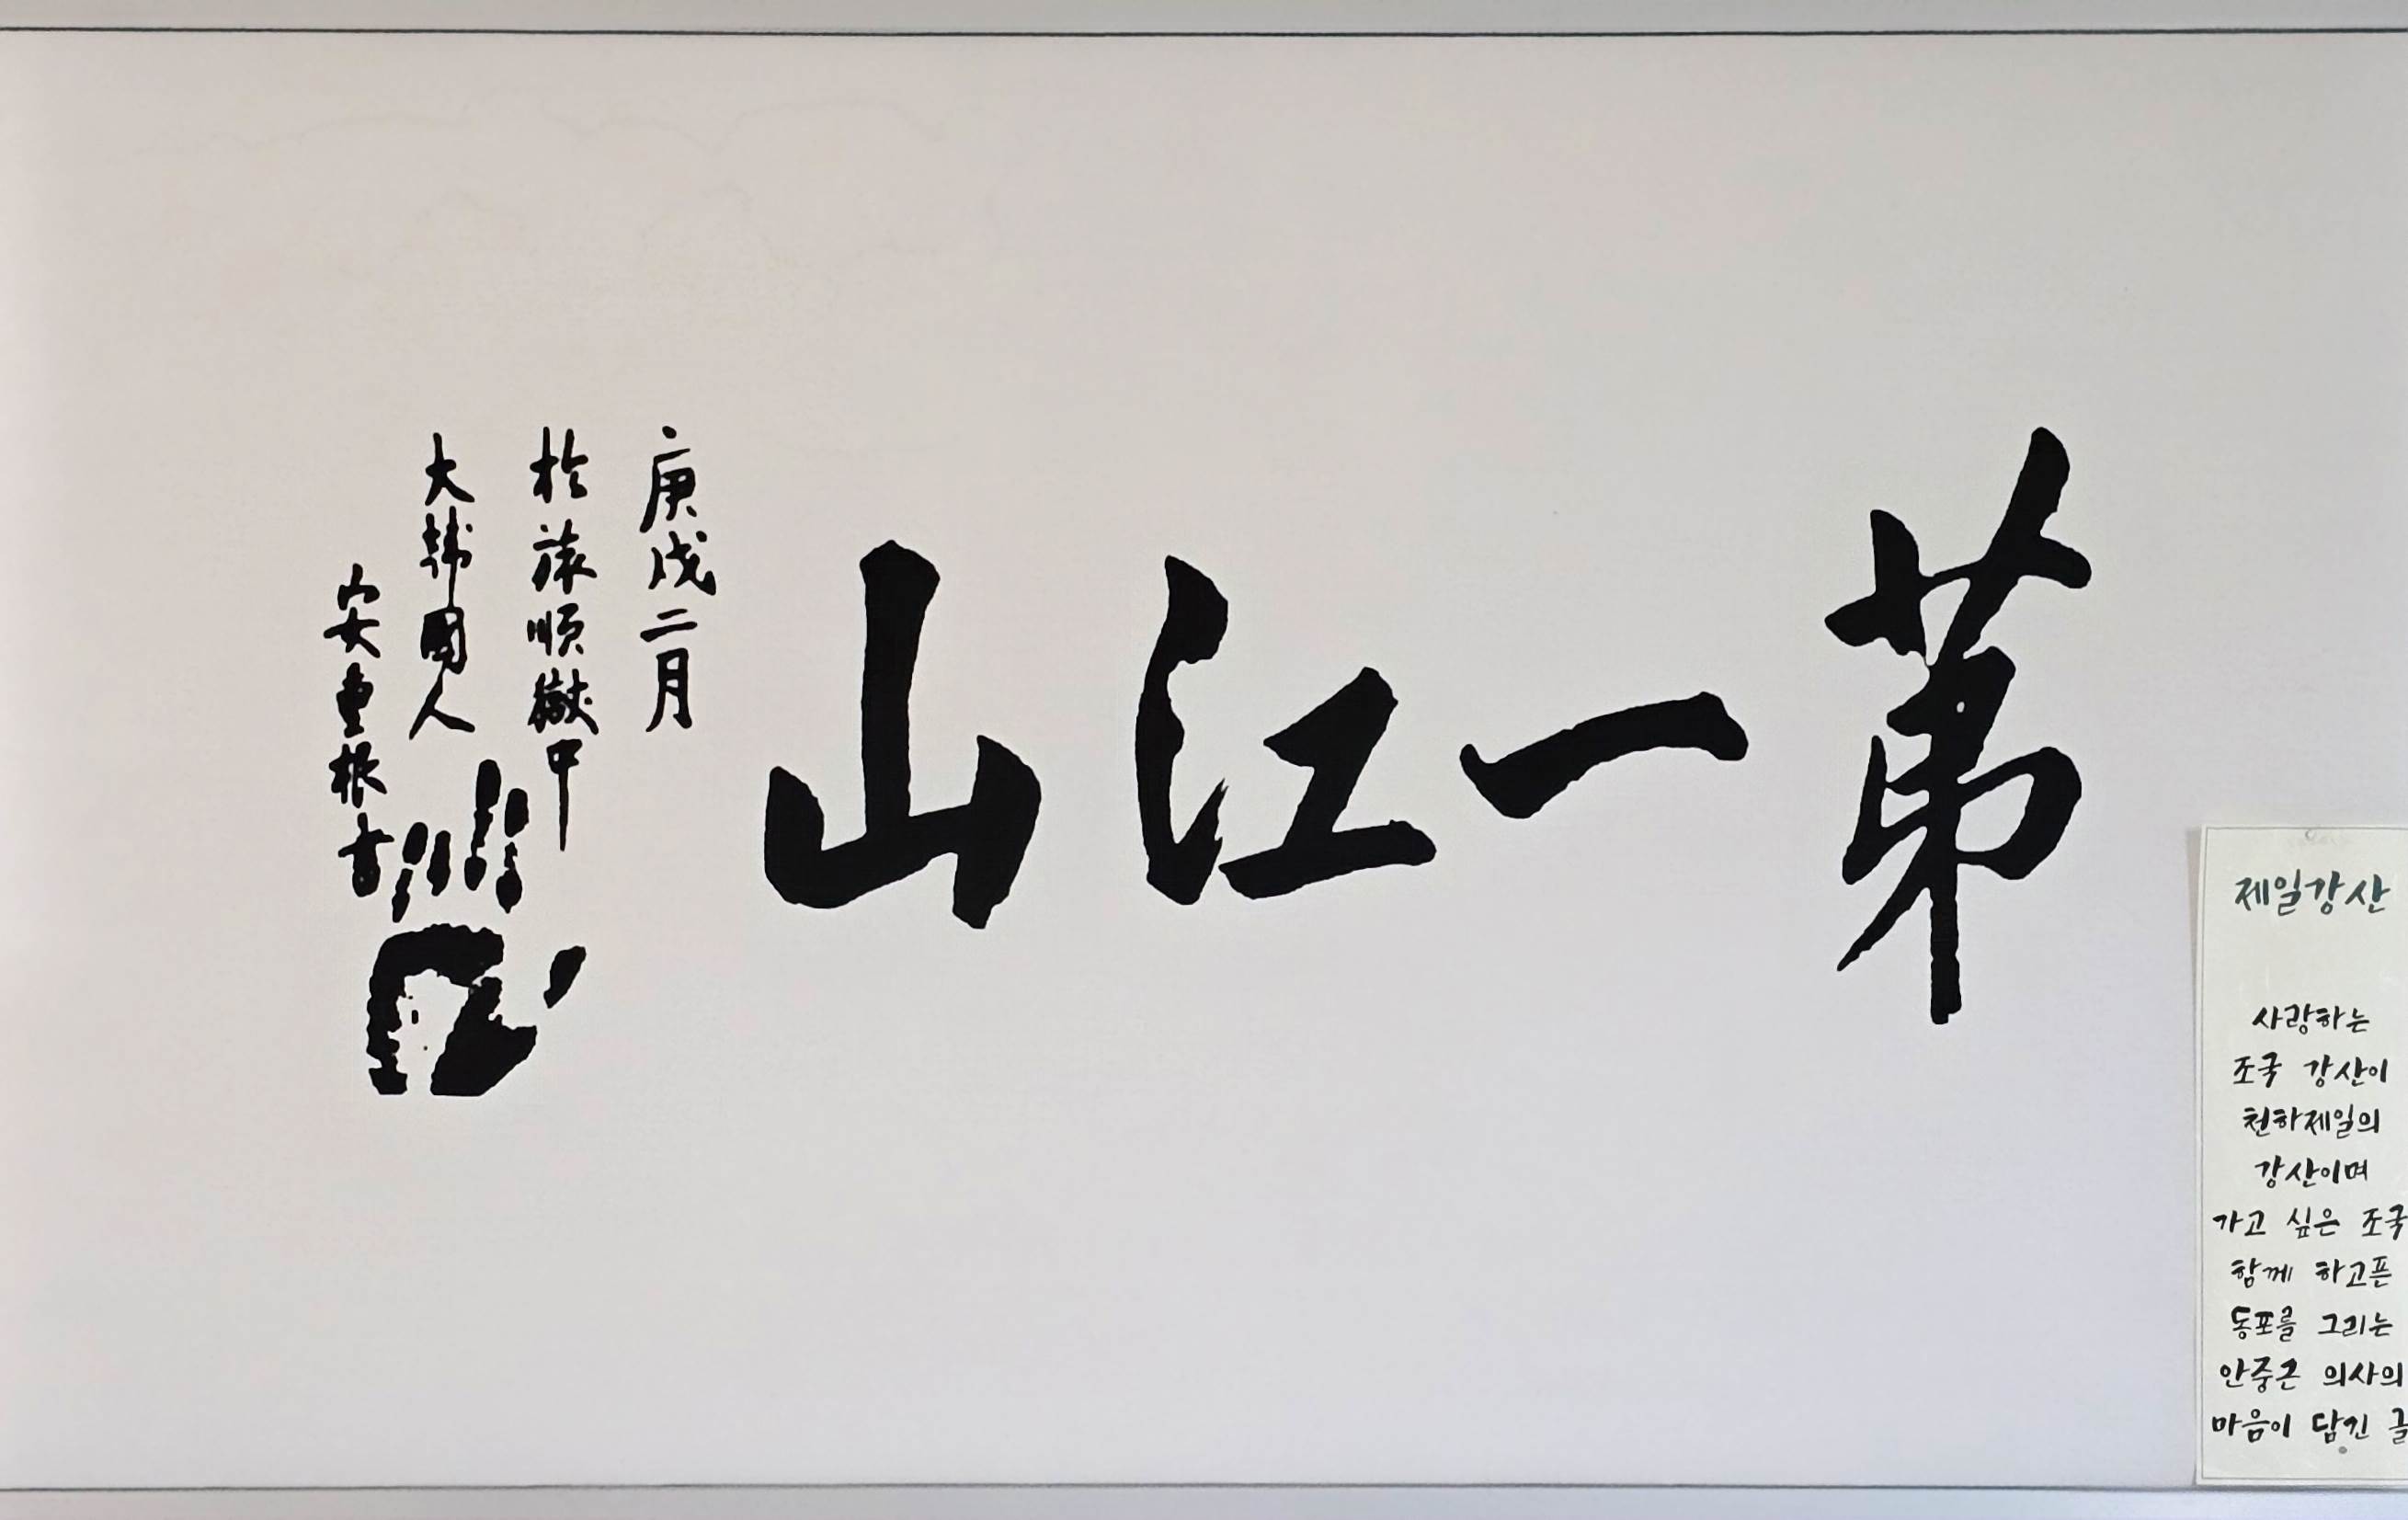 第一江山
庚戌二月
於旅順獄中
大韓國人
安重根書
제일강산
사랑하는
조국 강산이
천하제일의
강산이며
가고 싶은 조국
함께 하고픈
동포를 그리는
안중근 의사의
마음이 담긴 글